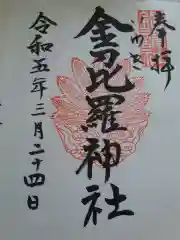 奉拝
金刀毘羅神社
令和五年三月二十四日